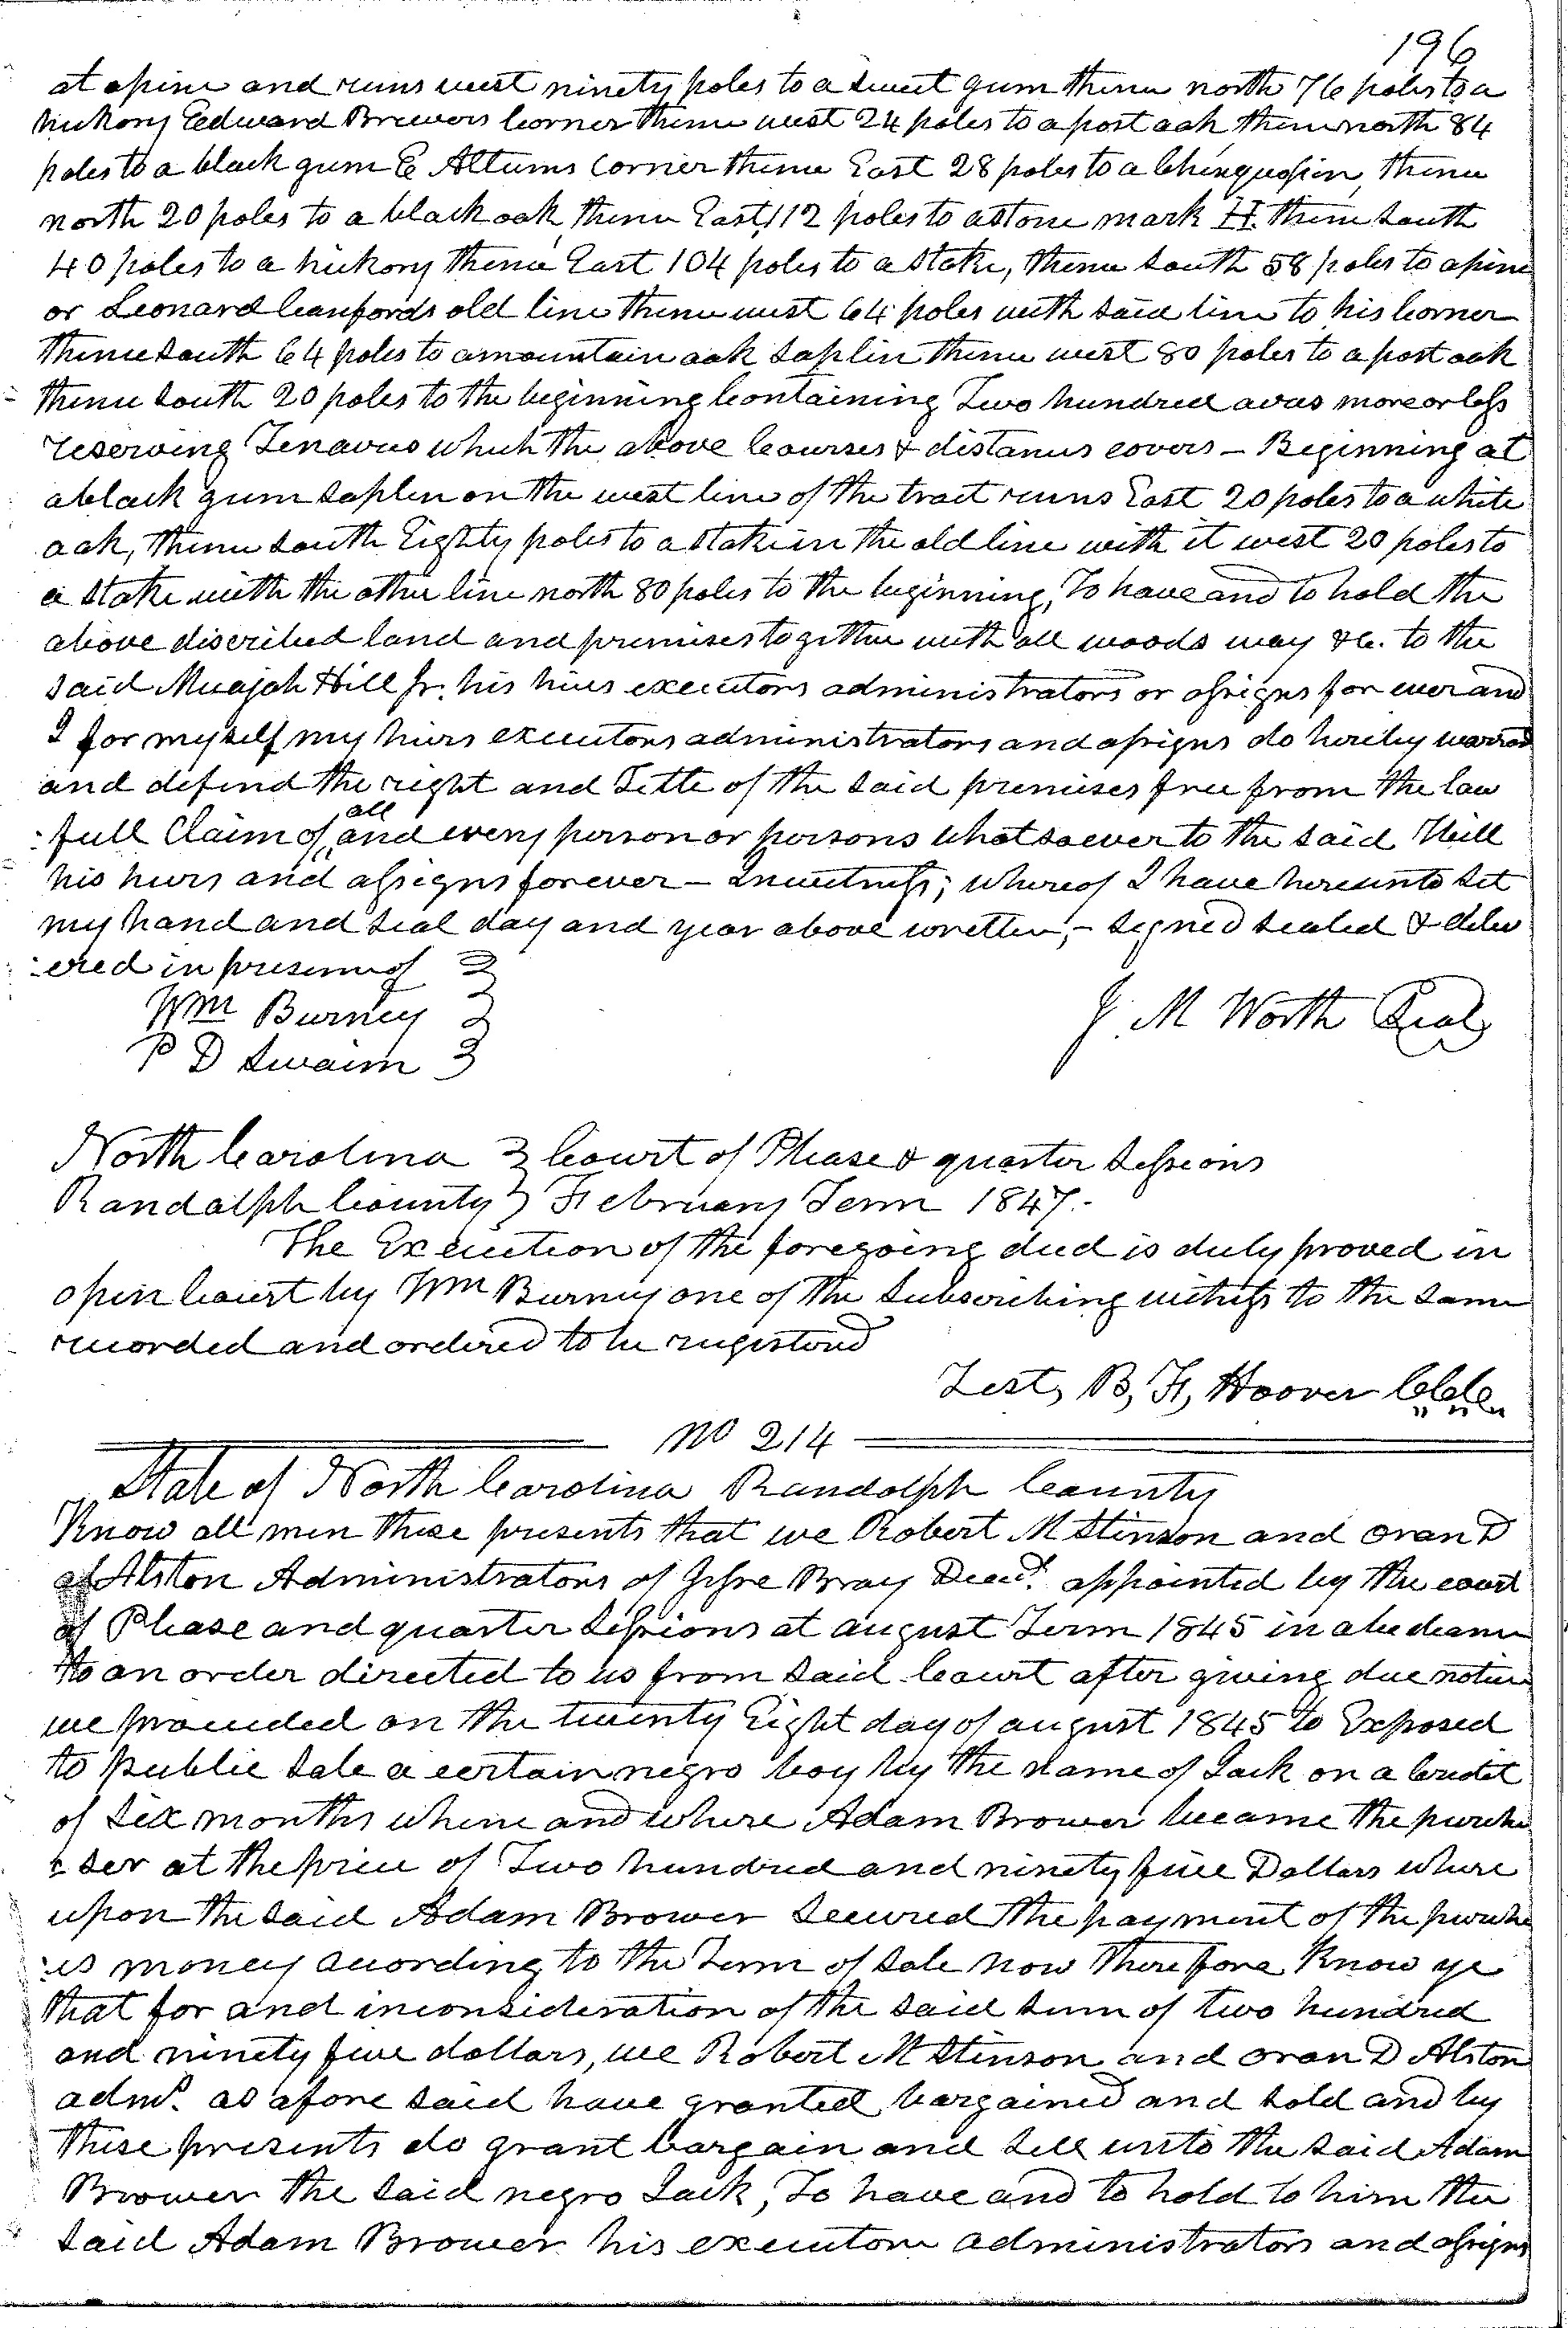 196
at a pine and runs west ninety poles to a sweet gum thence north 76 poles to a
hickory Eedward Brewers Corner thence west 24 poles to a post oak thence north 84
poles to a black gum E Altums Corner thence East 28 poles to a Chinquopin, thence
north 20 poles to a black oak thence East 112 poles to a stone mark H. thence South
40 poles to a hickory thence East 104 poles to a Stake, thence South 58 poles to a pine
or Leonard Cranfords old line thence west 64 poles with said line to his Corner
Thence South 64 poles to a mountain oak Saplin thence west 80 poles to a post oak
thence South 20 poles to the beginning Containing Two hundred acres more or less
reserving Ten acres which the above Courses & distances covers – Beginning at
a black gum Saplin on the west line of the tract runs East 20 poles to a white
oak, thence South Eighty poles to a Stake in the old line with it west 20 poles to
a Stake with the other line north 80 poles to the beginning, To have and to hold the
above discribed land and premises together with all woods way &c. to the
said Micajah Hill Jr. his heirs executors administrators or assigns for ever and
I for myself my heirs executors administrators and assigns do hereby warrant
and defend the right and Title of the said premises free from the law
full Claim of all and every person or persons whatsoever to the said Hill
his heirs and assigns forever – In witness; whereof I have hereunto Set
my hand and Seal day and year above written, – Signed Sealed & deliv
ered in presence of
Wm Burney
P D Swaim
J. M Worth Seal
North Carolina Court of Please & quarter Sessions
Randolph County February Term 1847.
The Execution of the foregoing deed is duly proved in
open Court by Wm Burney one of the Subscribing witness to the Same
recorded and ordered to be registered
Test, B, F, Hoover Clk
No 214
State of North Carolina Randolph County
Know all men these presents that we Robert M Stinson and Oran D
Alston Administrators of Jesse Bray Decd. appointed by the court
of Please and quarter Sessions at august Term 1845 in abedeance
to an order directed to us from said Court after giving due notice
we proceeded on the twenty Eight day of august 1845 to Exposed
to Public Sale a certain negro boy by the name of Jack on a Credit
of Six months where and where Adam Brower became the purcha
ser at the price of Two hundred and ninety five Dollars where
upon the said Adam Brower Secured the payment of the purcha
es money acording to the Term of Sale now Therefore Know ye
that for and in consideration of the said Sum of two hundred
and ninety five dollars, we Robert M Stinson and Oran D Alston
admr. as afore said have granted bargained and Sold and by
these presents do grant bargain and Sell unto the said Adam
Brower the said negro Jack, To have and to hold to him the
said Adam Brower his executors administrators and assigns